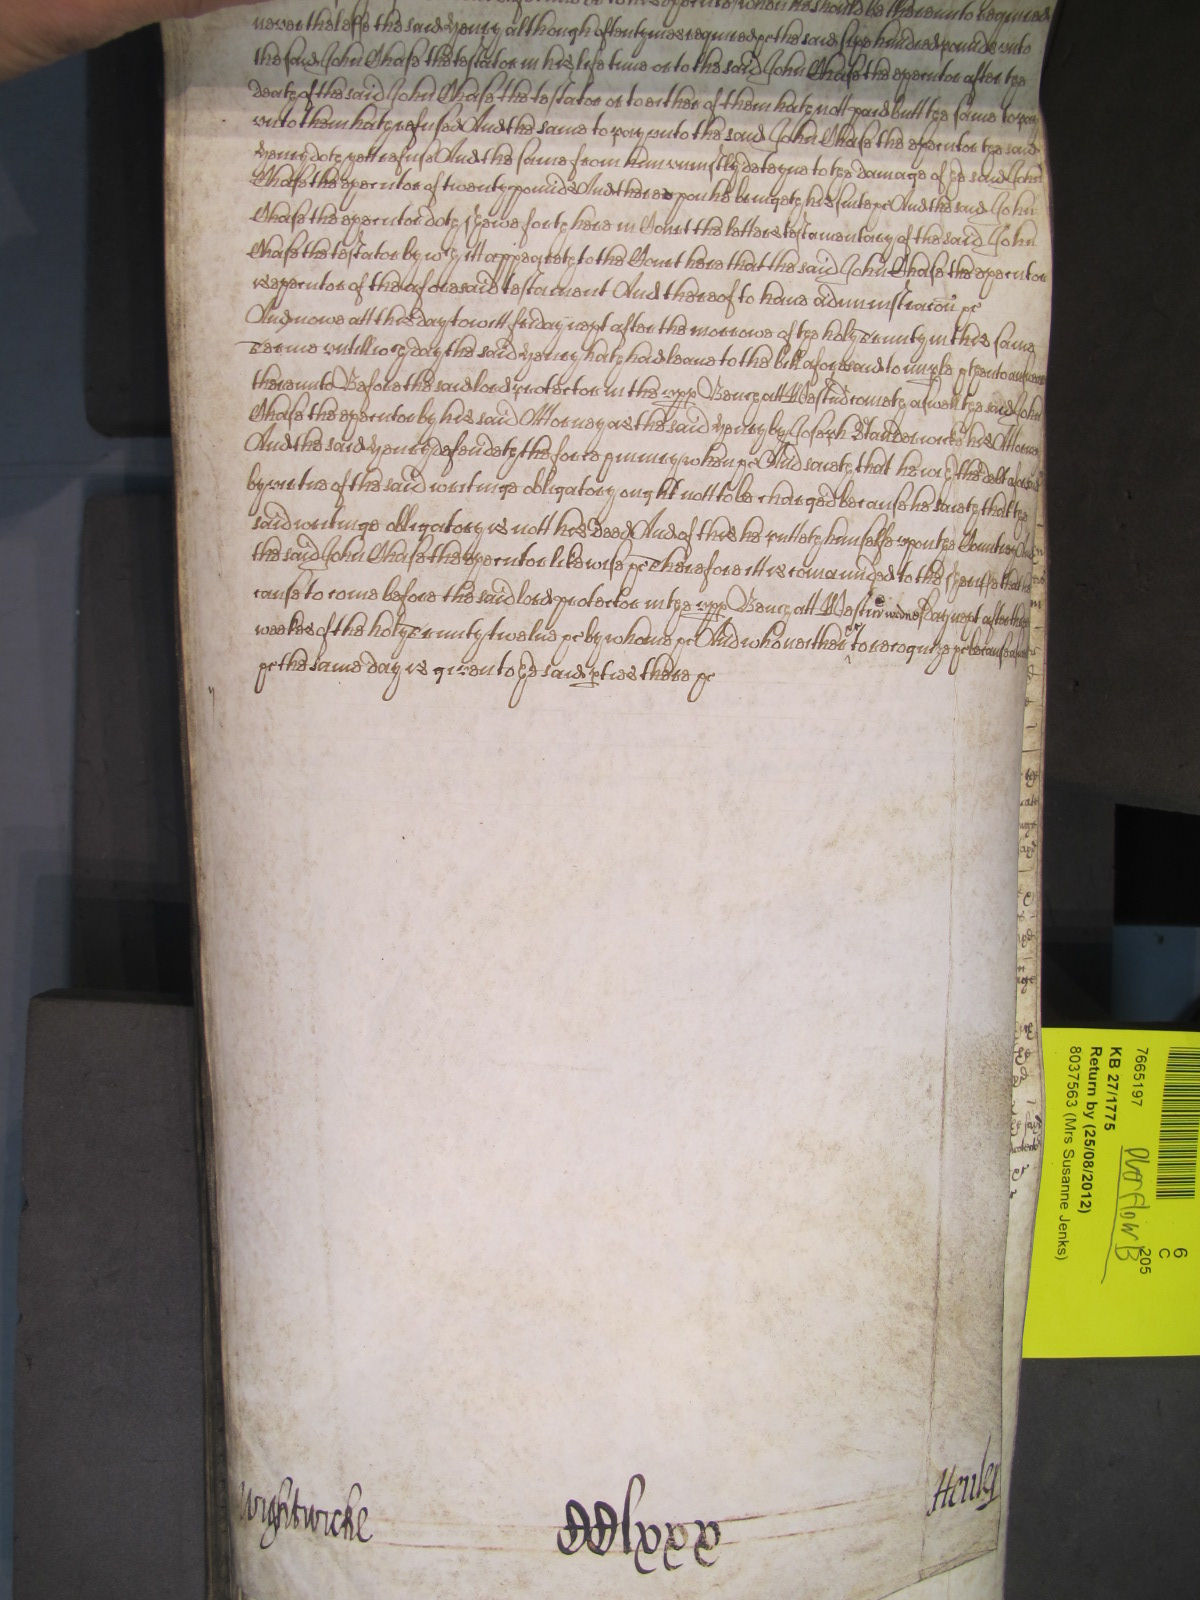 when he should be thereunto required
neverthelesse the said Henry although oftentymes required &c the said sixe hundred pounds unto
the said John Chase the testator in his life time or to the said John Chase the executor after the
death of the said John Chase the testator or to either of them hath nott paid butt the same to pay
unto them hath refused And the same to pay unto the said John Chase the executor the said
Henry doth yett refuse And the same from him uniustly deteyne to the damage of the said John
Chase the executor of twenty pounds And thereupon he bringeth his suite &c And the said John
Chase the executor doth shewe forth here in Court the letters testamentary of the said John
Chase the testator by wch itt appeareth to the Court here that the said John Chase the executor
is executor of the aforesaid testament And thereof to have administracon &c
And nowe att this day to witt friday next after the morrowe of the holy Trinity in this same
Terme untill wch day the said Henry hath had leave to the bill aforesaid to imple & then to answere
thereunto Before the said lord protector in the upp Bench att Westm cometh aswell the said John
Chase the executor by his said Attorney as the said Henry by Joseph his Attorney
And the said Henry defendeth the force & iniury when &c And saieth that he wth the debt aforesaid
by vertue of the said writinge obligatory ought nott to be charged because he saieth that the
said writinge obligatory is nott his deed And of this he putteth himselfe upon the Countrey And
the said John Chase the executor likewise &c Therefore itt is comaunded to the Sheriffe that he
cause to come before the said lord protector in the upp Bench att Westm wednesday next after three
weekes of the holy Trinity twelve &c by whome &c And who neither &c to recognize &c because aswell
&c the same day is given to the said pties there &c
Wightwicke
DDlxxx
Henley
7665197
KB 27/1775
Return by (25/08/2012)
8037563 (Mrs Susanne Jenks)
Overflow B
205
6
C